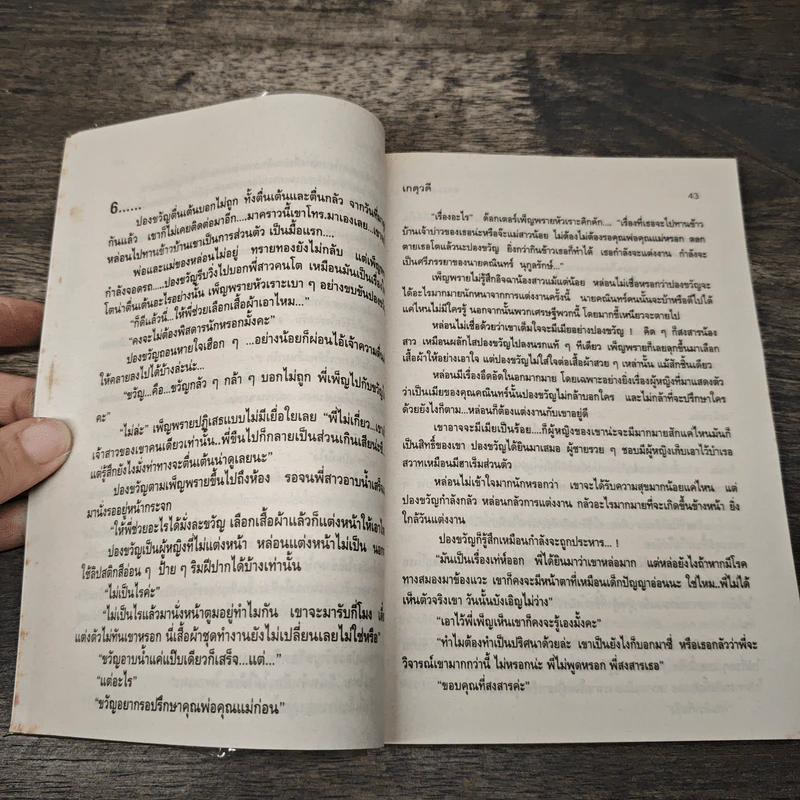 6......
ปองขวัญตื่นเต้นบอกไม่ถูก ทั้งตื่นเต้นและตื่นกลัว จากวันที่
กันแล้ว เขาก็ไม่เคยติดต่อมาอีก....มาคราวนี้เขาโทร.มาเองเลย...
หล่อนไปทานข้าวบ้านเขาเป็นการส่วนตัว เป็นมื้อแรก....
พ่อและแม่ของหล่อนไม่อยู่ ทรายทองยังไม่กลับ แต่
กำลังจอดรถ.....ปองขวัญรีบวิ่งไปบอกพี่สาวคนโต เหมือนมันเป็นเรื่อง
โตน่าตื่นเต้นอะไรอย่างนั้น เพ็ญพรายหัวเราะเบา ๆ อย่างขบขัน
"ก็ดีแล้วนี่...ให้พี่ช่วยเลือกเสื้อผ้าเอาไหม..."
"คงจะไม่ต้องพิสดารนักหรอกมั้งคะ"
ปองขวัญถอนหายใจเฮือก ๆ ...อย่างน้อยก็ผ่อนไอ้เจ้าความ
ให้คลายลงไปได้บ้างล่ะน่ะ...
"ขวัญ...คือ...ขวัญกลัว ๆ กล้า ๆ บอกไม่ถูก พี่เพ็ญไปกับขวัญ
คะ"
"ไม่ล่ะ" เพ็ญพรายปฏิเสธแบบไม่มีเยื่อใยเลย "พี่ไม่เกี่ยว...
เจ้าสาวของเขาคนเดียวเท่านั้น..พี่ขืนไปก็กลายเป็นส่วนเกินเสียน่ะ
แต่รู้สึกยังไงมั่งท่าทางจะตื่นเต้นน่าดูเลยนะ"
ปองขวัญตามเพ็ญพรายขึ้นไปถึงห้อง รอจนพี่สาวอาบน้ำเสร็จ
มานั่งรออยู่หน้ากระจก
"ให้พี่ช่วยอะไรได้มั่งล่ะขวัญ เลือกเสื้อผ้าแล้วก็แต่งหน้าให้เอา
ปองขวัญเป็นผู้หญิงที่ไม่แต่งหน้า หล่อนแต่งหน้าไม่เป็น
ใช้ลิปสติกสีอ่อน ๆ ป้าย ๆ ริมฝีปากได้บ้างเท่านั้น
"ไม่เป็นไรค่ะ"
"ไม่เป็นไรแล้วมานั่งหน้าตูมอยู่ทำไมกัน เขาจะมารับกี่โมง
แต่งตัวไม่ทันเขาหรอก นี่เสื้อผ้าชุดทำงานยังไม่เปลี่ยนเลยไม่ใช่หรือ"
"ขวัญอาบน้ำแค่แป๊บเดียวก็เสร็จ...แต่..."
"แต่อะไร"
"ขวัญอยากรอปรึกษาคุณพ่อคุณแม่ก่อน"
เกตุวดี
43
"เรื่องอะไร" ด็อกเตอร์เพ็ญพรายหัวเราะคิกคัก.... "เรื่องที่เธอจะไปทานข้าว
บ้านเจ้าบ่าวของเธอน่ะหรือจ๊ะแม่สาวน้อย ไม่ต้องไม่ต้องรอคุณพ่อคุณแม่หรอก ตลก
ตายเธอโตแล้วนะปองขวัญ ยิ่งกว่ากินข้าวเธอก็ทำได้ เธอกำลังจะแต่งงาน กำลังจะ
เป็นศรีภรรยาของนายคณินทร์ นุกูลรักษ์..."
เพ็ญพรายไม่รู้สึกอิจฉาน้องสาวแม้แต่น้อย หล่อนไม่เชื่อหรอกว่าปองขวัญจะ
ได้อะไรมากมายนักหนาจากการแต่งงานครั้งนี้ นายคณินทร์คนนั้นจะบ้าหรือดีไปได้
แค่ไหนไม่มีใครรู้ นอกจากนั้นพวกเศรษฐีพวกนี้ โดยมากขี้เหนียวจะตายไป
หล่อนไม่เชื่อด้วยว่าเขาเต็มใจจะมีเมียอย่างปองขวัญ ! คิด ๆ ก็สงสารน้อง
สาว เหมือนผลักไสปองขวัญไปลงนรกแท้ ๆ ทีเดียว เพ็ญพรายก็เลยลุกขึ้นมาเลือก
เสื้อผ้าให้อย่างเอาใจ แต่ปองขวัญไม่ใส่ใจต่อเสื้อผ้าสวย ๆ เหล่านั้น แม้สักชิ้นเดียว
หล่อนมีเรื่องอึดอัดในอกมากมาย โดยเฉพาะอย่างยิ่งเรื่องผู้หญิงที่มาแสดงตัว
ว่าเป็นเมียของคุณคณินทร์นั้นปองขวัญไม่กล้าบอกใคร และไม่กล้าที่จะปรึกษาใคร
ด้วยยังไงก็ตาม...หล่อนก็ต้องแต่งงานกับเขาอยู่ดี
เขาอาจจะมีเมียเป็นร้อย....ก็ผู้หญิงของเขาน่ะจะมีมากมายสักแค่ไหนมันก็
เป็นสิทธิ์ของเขา ปองขวัญได้ยินมาเสมอ ผู้ชายรวย ๆ ชอบมีผู้หญิงเก็บเอาไว้บำเรอ
สวาทเหมือนมีฮาเร็มส่วนตัว
หล่อนไม่เข้าใจมากนักหรอกว่า เขาจะได้รับความสุขมากน้อยแค่ไหน แต่
ปองขวัญกำลังกลัว หล่อนกลัวการแต่งงาน กลัวอะไรมากมายที่จะเกิดขึ้นข้างหน้า ยิ่ง
ใกล้วันแต่งงาน
ปองขวัญก็รู้สึกเหมือนกำลังจะถูกประหาร... !
"มันเป็นเรื่องเท่ห์ออก พี่ได้ยินมาว่าเขาหล่อมาก แต่หล่อยังไงถ้าหากมีโรค
ทางสมองมาข้องแวะ เขาก็คงจะมีหน้าตาที่เหมือนเด็กปัญญาอ่อนนะ ใช่ไหม..พี่ไม่ได้
เห็นตัวจริงเขา วันนั้นบังเอิญไม่ว่าง"
"เอาไว้พี่เพ็ญเห็นเขาก็คงจะรู้เองมั้งคะ"
"ทำไมต้องทำเป็นปริศนาด้วยล่ะ เขาเป็นยังไงก็บอกมาซี่ หรือเธอกลัวว่าพี่จะ
วิจารณ์เขามากกว่านี้ ไม่หรอกน่ะ พี่ไม่พูดหรอก พี่สงสารเธอ"
"ขอบคุณที่สงสารค่ะ"